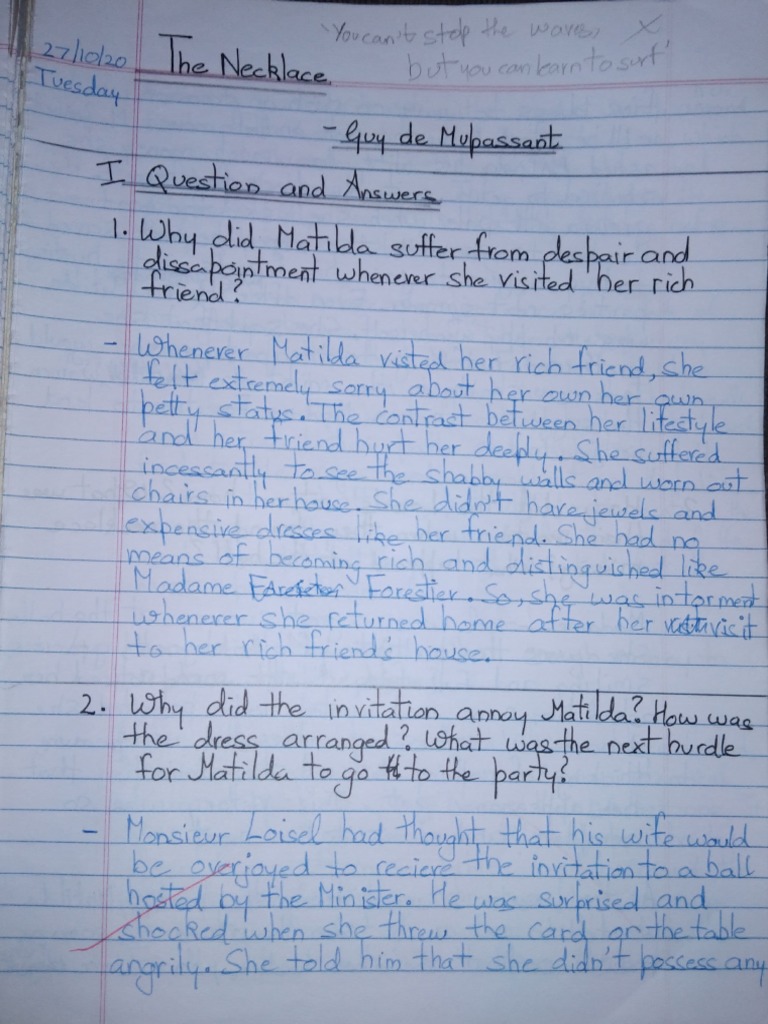 'You can't stop the waves, X
but you can learn to surf'
27/10/20
Tuesday
The Necklace
- Guy de Mupassant
I Question and Answers
1. Why did Matilda suffer from despair and
dissapointment whenever she visited her rich
friend?
- Whenever Matilda visted her rich friend, she
felt extremely sorry about her own her own
petty status. The contrast between her lifestyle
and her friend hurt her deeply. She suffered
incessantly to see the shabby walls and worn out
chairs in her house. She didn't have jewels and
expensive dresses like her friend. She had no
means of becoming rich and distinguished like
Madame Forestier. So, she was in torment
whenever she returned home after her visit
to her rich friend's house.
2. Why did the invitation annoy Matilda? How was
the dress arranged? What was the next burdle
for Matilda to go to the party?
- Monsieur Loisel had thought that his wife would
be overjoyed to recieve the invitation to a ball
hosted by the Minister. He was surprised and
shocked when she threw the card on the table
angrily. She told him that she didn't possess any